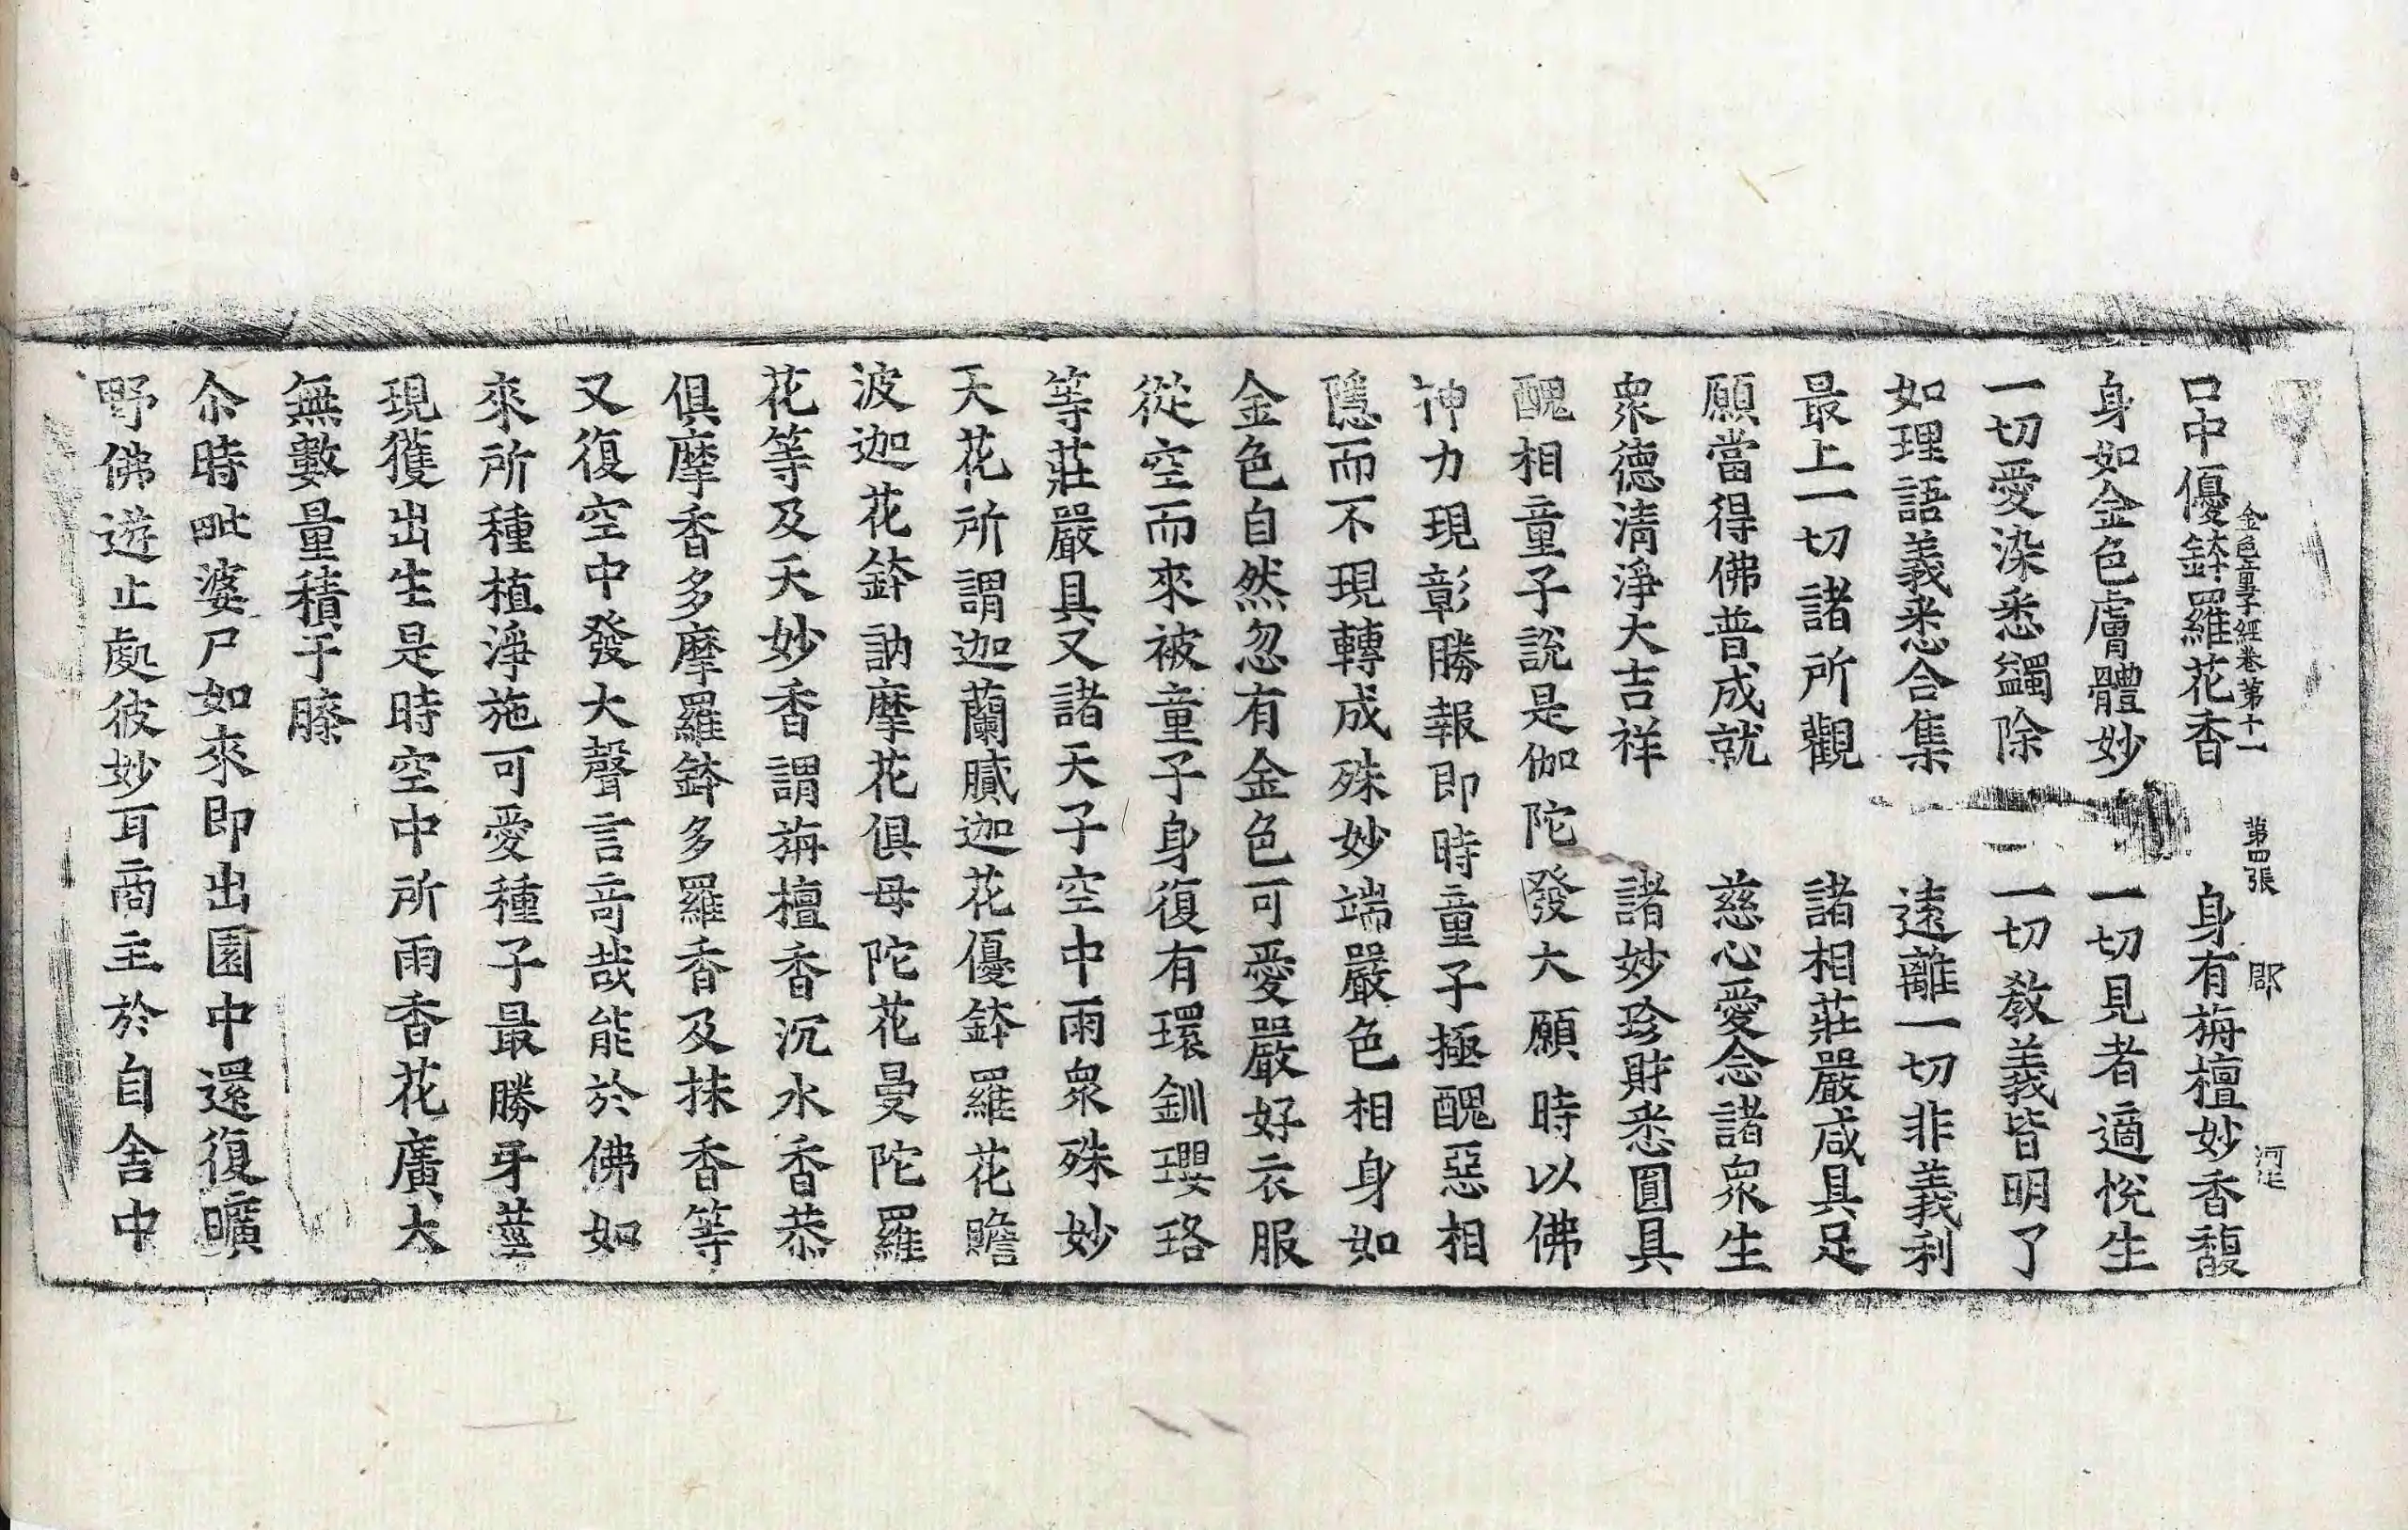 金色童子經卷第十一　第四張　郡
口中優鉢羅花香　身有栴檀妙香馥
身如金色膚體妙　一切見者適悅生
一切愛染悉蠲除　一切教義皆明了
如理語義悉合集　遠離一切非義利
最上一切諸所觀　諸相莊嚴咸具足
願當得佛普成就　慈心愛念諸衆生
衆德清淨大吉祥　諸妙珍財悉圓具
醜相童子說是伽陀發大願時以佛
神力現彰勝報即時童子極醜惡相
隱而不現轉成殊妙端嚴色相身如
金色自然忽有金色可愛嚴好衣服
從空而來被童子身復有環釧瓔珞
等莊嚴具又諸天子空中雨衆殊妙
天花所謂迦蘭膩迦花優鉢羅花瞻
波迦花鉢訥摩花俱母陀花曼陀羅
花等及天妙香謂栴檀香沉水香恭
俱摩香多摩羅鉢多羅香及抹香等
又復空中發大聲言竒哉能於佛如
來所種植淨施可愛種子最勝牙莖
現獲出生是時空中所雨香花廣大
無數量積于膝
尒時毗婆尸如來即出園中還復曠
野佛遊止處彼妙耳商主於自舍中